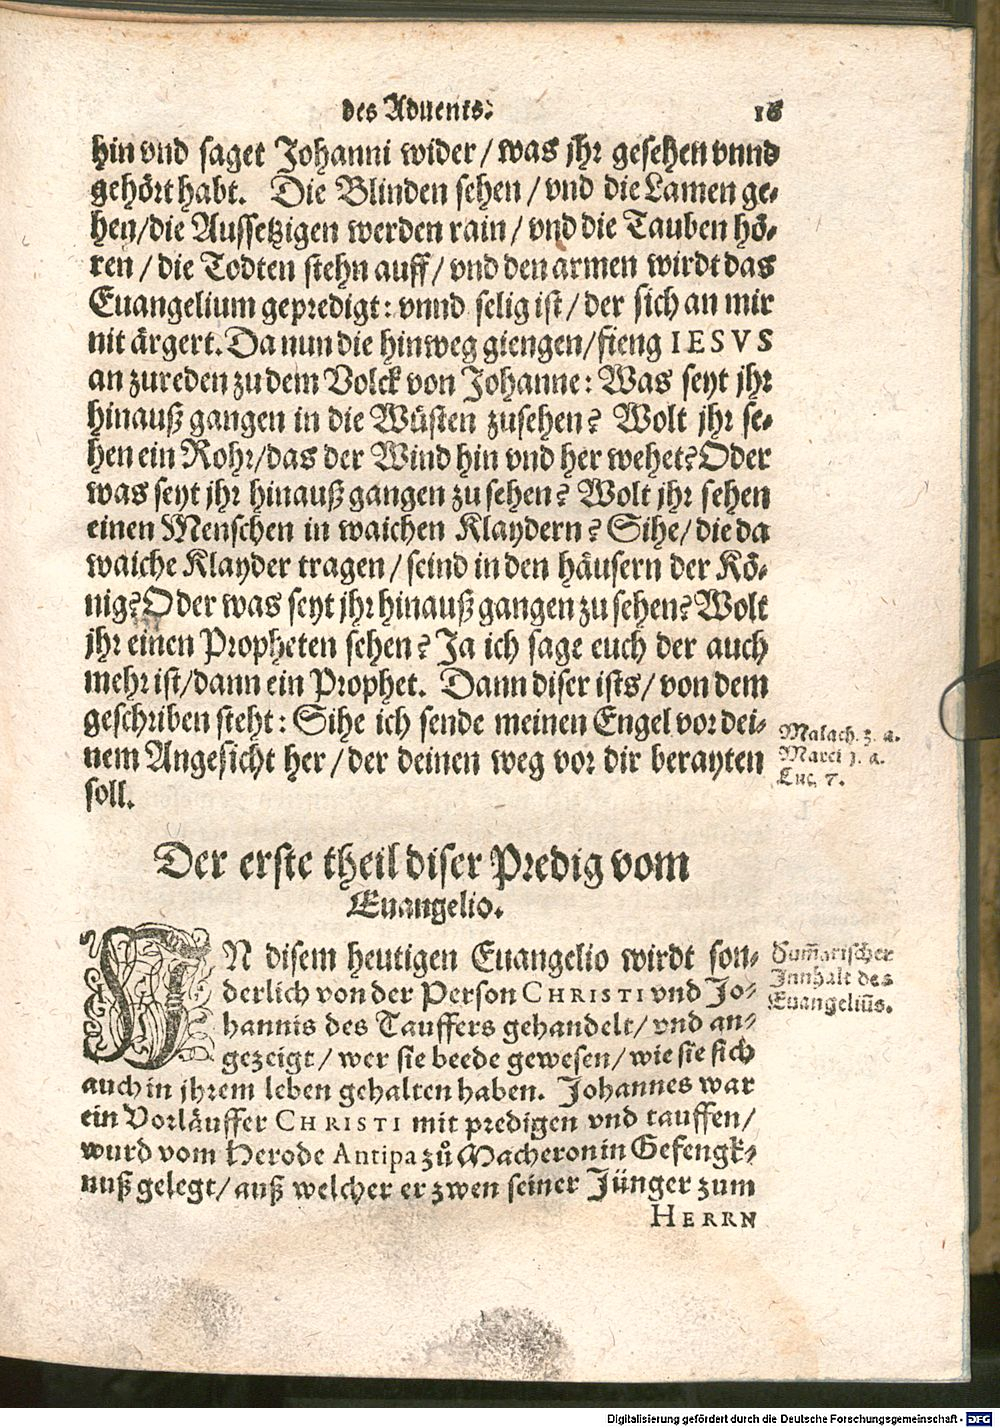 des Aduents.
16
hin vnd saget Johanni wider / was jhr gesehen vnnd
gehört habt. Die Blinden sehen / vnd die Lamen ge-
hen/die Aussetzigen werden rain / vnd die Tauben hö-
ren / die Todten stehn auff / vnd den armen wirdt das
Euangelium gepredigt: vnnd selig ist / der sich an mir
nit ärgert. Da nun die hinweg giengen/fieng IESVS
an zureden zu dem Volck von Johanne: Was seyt jhr
hinauß gangen in die Wüsten zusehen? Wolt jhr se-
hen ein Rohr/das der Wind hin vnd her wehet? Oder
was seyt jhr hinauß gangen zu sehen? Wolt jhr sehen
einen Menschen in waichen Klaydern? Sihe/ die da
waiche Klayder tragen / seind in den häusern der Kö-
nig? Oder was seyt jhr hinauß gangen zu sehen? Wolt
jhr einen Propheten sehen? Ja ich sage euch der auch
mehr ist/dann ein Prophet. Dann diser ists / von dem
geschriben steht: Sihe ich sende meinen Engel vor dei-
nem Angesicht her / der deinen weg vor dir berayten
soll.
Malach. 3. a.
Marci j. a.
Luc. 7.
Der erste theil diser Predig vom
Euangelio.
IN disem heutigen Euangelio wirdt son-
derlich von der Person CHRISTI vnd Jo-
hannis des Tauffers gehandelt/ vnd an-
gezeigt / wer sie beede gewesen/ wie sie sich
auch in jhrem leben gehalten haben. Johannes war
ein Vorläuffer CHRISTI mit predigen vnd tauffen/
wurd vom Herode Antipa zů Macheron in Gefengk-
nuß gelegt/ auß welcher er zwen seiner Jünger zum
HERRN
Sum̄arischer
Jnnhalt des
Euangeliūs.
Digitalisierung gefördert durch die Deutsche Forschungsgemeinschaft - DFG